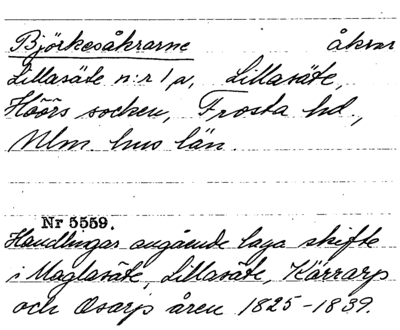 Björkesåkrarne åkrar
Lillasäte n:r 1, a, Lillasäte,
Höörs socken, Frosta hd,
Mlm. hus län.
Nr 5559.
Handlingar angående laga skifte
i Maglasäte, Lillasäte, Kärrarp
och Osarp åren 1825-1839.